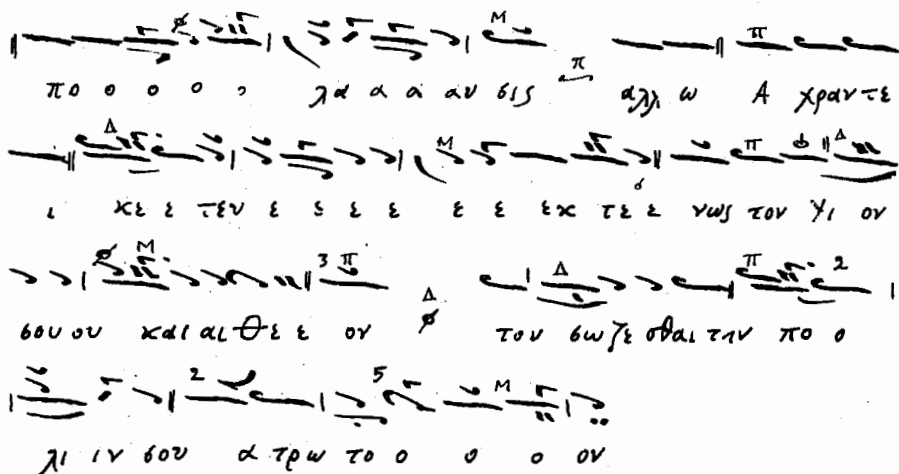 πο ο ο ο ο λα α α αυ σις π αλλ ω Α χραν τε
ι κε ε τευ ε ε ε ε ε ε εκ τε ε νως τον Υι ον
σου ου και αι Θε ε ον τον σωζε σθαι την πο ο
λι ιν σου α τρω το ο ο ο ον